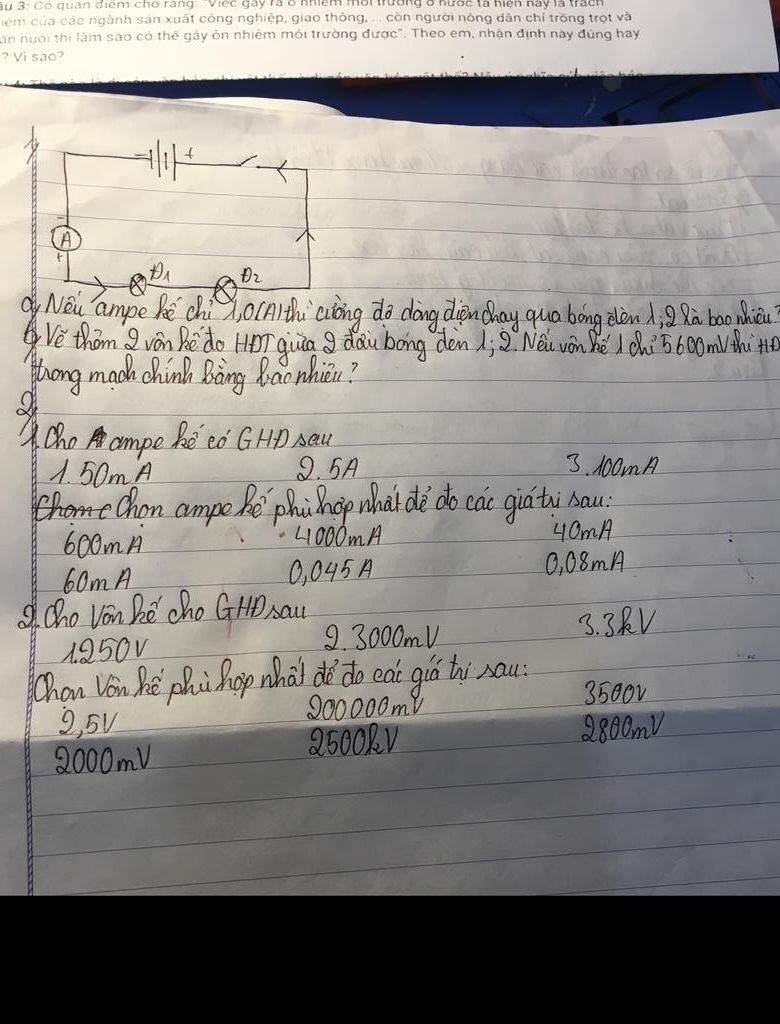 âu 3: Có quan điểm cho rằng: "Việc gây ra ô nhiễm môi trường ở nước ta hiện nay là trách
iệm của các ngành sản xuất công nghiệp, giao thông, ... còn người nông dân chỉ trồng trọt và
ăn nuôi thì làm sao có thể gây ôn nhiễm môi trường được". Theo em, nhận định này đúng hay
? Vì sao?
1,
- +
-
A
+
Đ1 Đ2
a, Nếu ampe kế chỉ 1,0(A) thì cường độ dòng điện chạy qua bóng đèn 1; 2 là bao nhiêu?
b, Vẽ thêm 2 vôn kế đo HĐT giữa 2 đầu bóng đèn 1; 2. Nếu vôn kế 1 chỉ 5600mV thì HĐ
trong mạch chính bằng bao nhiêu?
2,
1. Cho ampe kế có GHĐ sau
1. 50mA 2. 5A 3. 100mA
Chọn ampe kế phù hợp nhất để đo các giá trị sau:
600mA 4000mA 40mA
60mA 0,045A 0,08mA
2. Cho Vôn kế cho GHĐ sau
1.250V 2. 3000mV 3. 3kV
Chọn Vôn kế phù hợp nhất để đo các giá trị sau:
2,5V 200000mV 3500V
2000mV 2500kV 2800mV